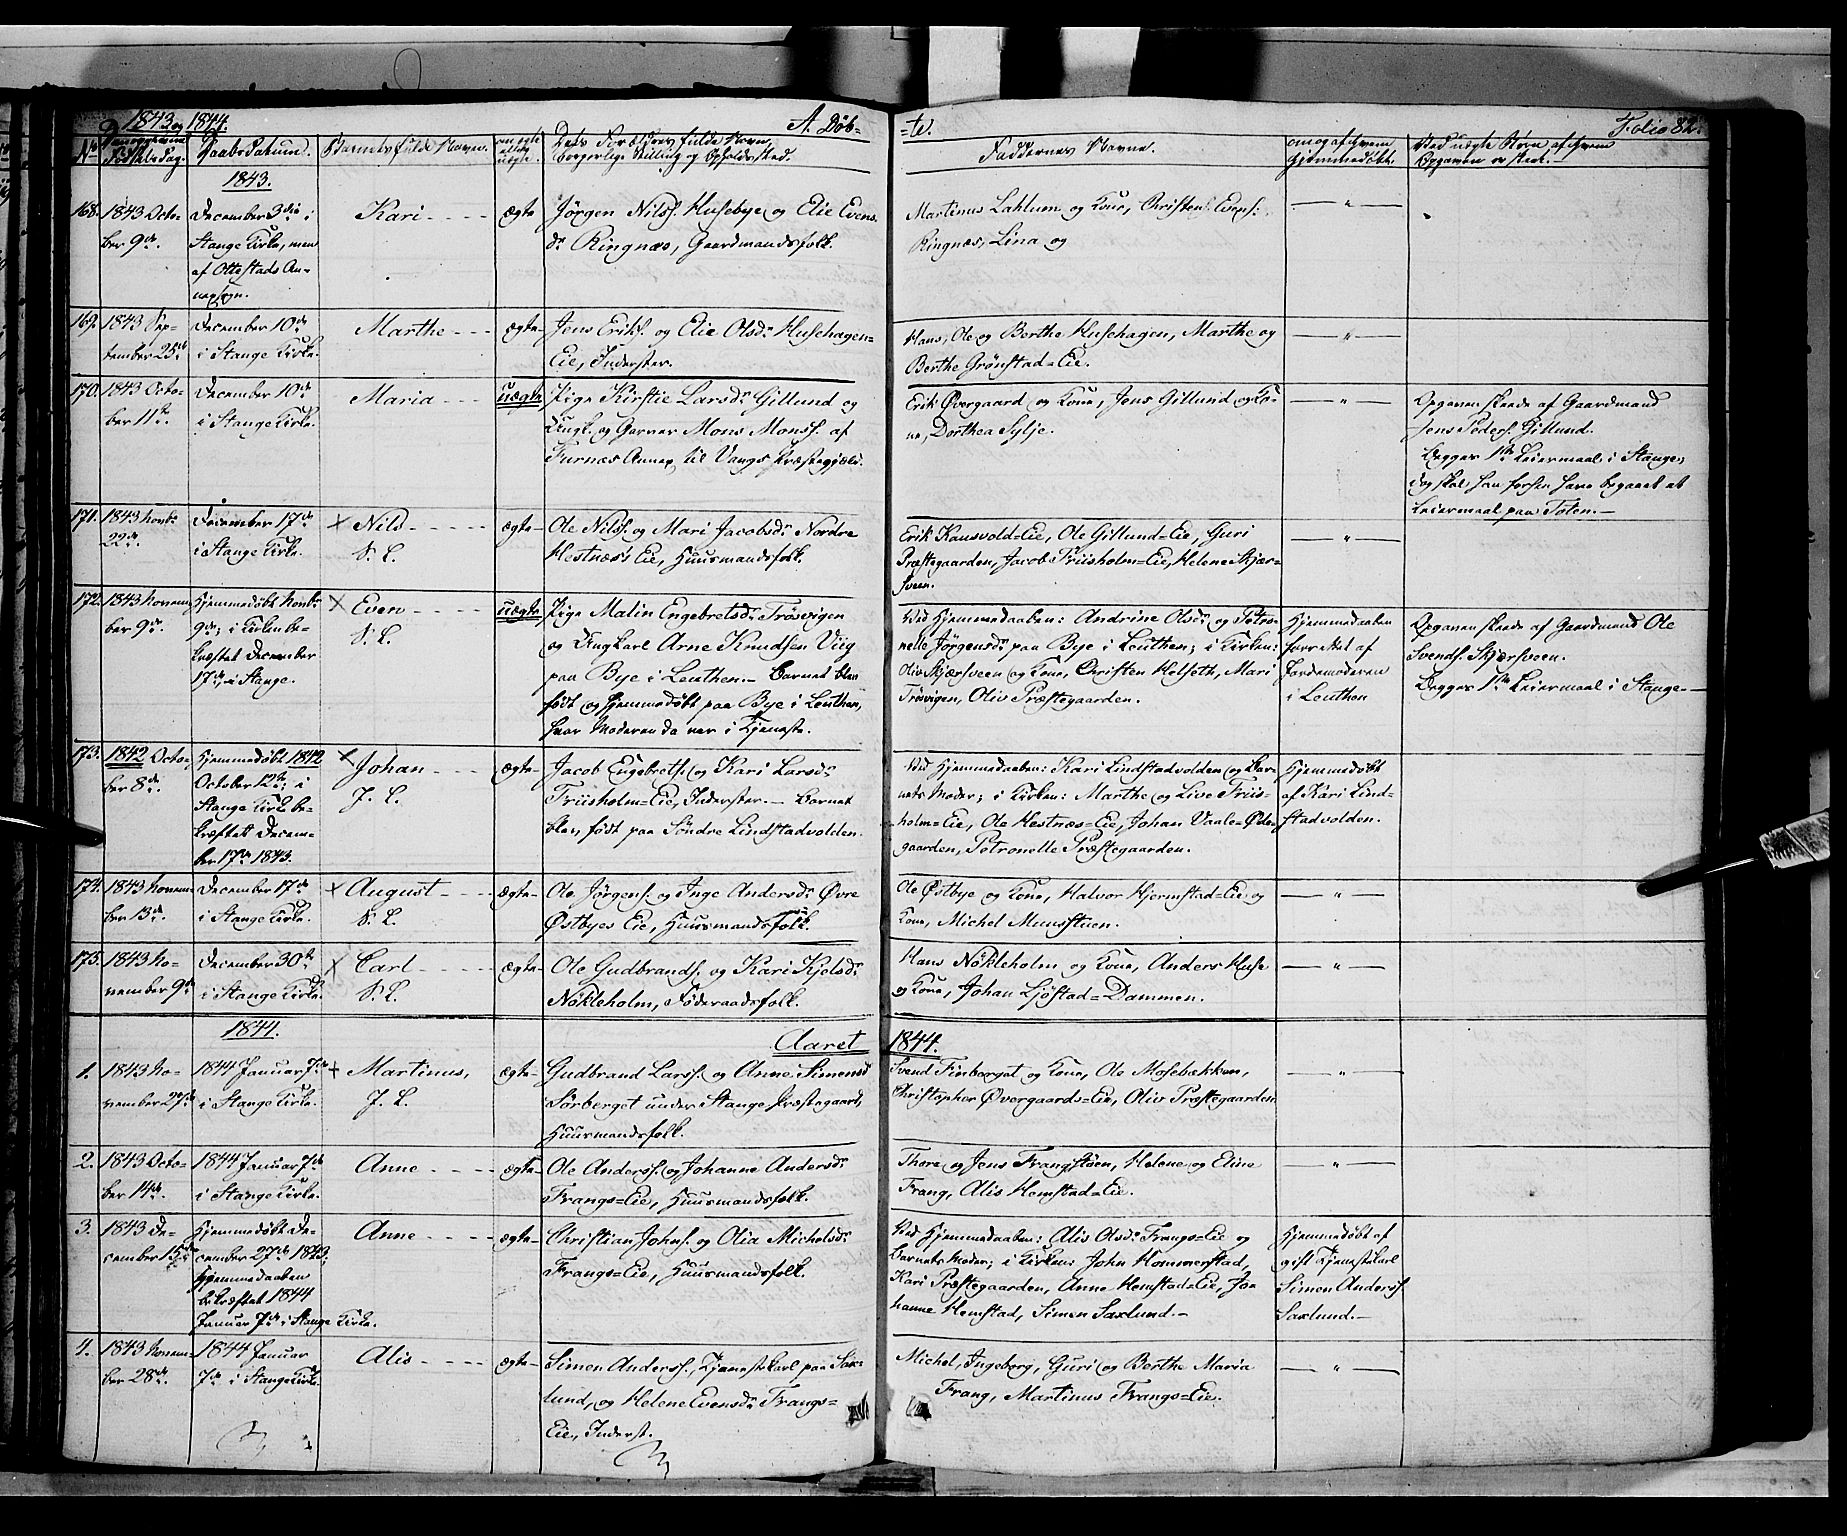 1843 og 1844.
A. Døb-
=te.
Folio 82.
No
Fødselsdag.
Daabs Datum.
Barnets fulde Navn.
ægte eller uægte.
Forældres fulde Navn,
borgerlige Stilling og Opholdssted.
Faddernes Navne.
1843.
168. 1843 Octo-
ber 9de.
December 3die i
Stange Kirke, men
af Ottestads An-
nexsogn.
Kari
ægte
Jørgen Nilss. Husebye og Elie Evens-
dr. Ringnæs, Gaardmandsfolk.
Martinus Lahlum og Kone, Christen Evens.
Ringnæs, Lina og
— " —
169. 1843 Sep-
tember 25de
December 10de
i Stange Kirke.
Marthe
ægte
Jens Eriks. og Elie Olsdr. Husehagen-
Eie, Inderster.
Hans, Ole og Berthe Husehagen, Marthe og
Berthe Grønstad=Eie.
— " —
170. 1843 Octo-
ber 11te.
December 10de
i Stange Kirke.
Maria
uægte
Pige Kirstie Larsdr. Gillund og
Ungk. og Garver Mons Monss. af
Furnæs Annex til Vangs Præstegjeld.
Erik Øvergaard og Kone, Jens Gillund og Ko-
ne, Dorthea Sylje.
— " —
Opgaven skeede af Gaardmand
Jens Peders. Gillund.
Begges 1ste Leiermaal i Stange;
dog skal han forhen have begaaet et
Leiermaal paa Toten.—
171. 1843 Novbr.
22de.
December 17de
i Stange Kirke.
× Nils
S. L.
ægte
Ole Nilss. og Mari Jacobsdr. Nordre
Hestnæs's Eie, Huusmandsfolk.
Erik Kausvold=Eie, Ole Gillund=Eie, Guri
Præstegaarden, Jacob Friisholm=Eie, Helene Skjær-
sveen.
— " —
172. 1843 Novem-
ber 9de.
Hjemmedøbt Novbr.
9de; i Kirken be-
kræftet December
17de, i Stange.
× Even
S. L.
uægte
Pige Malin Engebretsdr. Trøsvigen
og Ungkarl Arne Knudsen Viig
paa Bye i Leuthen.— Barnet blev
født og hjemmedøbt paa Bye i Leuthen,
hvor Moderen da var i Tjeneste.
Ved Hjemmedaaben: Andrine Olsdr. og Petro-
nelle Jørgensdr. paa Bye i Leuthen; i Kirken:
Oliv Skjærsveen og Kone, Christen Helseth, Mari
Trøsvigen, Oliv Præstegaarden.
Hjemmedaaben
forrettet af
Jordemoderen
i Leuthen
Opgaven skeede af Gaardmand Ole
Svends. Skjærsveen.
Begges 1ste Leiermaal i Stange.—
173. 1842 Octo-
ber 8de.
Hjemmedøbt 1842
October 12te; i
Stange Kirke be-
kræftet Decem-
ber 17de 1843.
× Johan
J. L.
ægte
Jacob Engebrets. og Kari Larsdr.
Friisholm=Eie, Inderster.— Barnet
blev født paa Søndre Lindstadvolden.
Ved Hjemmedaaben: Kari Lindstadvolden og Bar-
nets Moder; i Kirken: Marthe og Live Friis-
holm=Eie, Ole Hestnæs=Eie, Johan Vaale=Øde-
gaarden, Petronelle Præstegaarden.
Hjemmedøbt
af Kari Lind-
stadvolden.
174. 1843 Novem-
ber 13de.
December 17de
i Stange Kirke.
× August
S. L.
ægte
Ole Jørgens. og Inge Andersdr. Øvre
Østbyes Eie, Huusmandsfolk.
Ole Østbye og Kone, Halvor Hjermstad=Eie og
Kone, Michel Muusstuen.
— " —
175. 1843 No-
vember 9de
December 30te
i Stange Kirke.
× Carl
S. L.
ægte
Ole Gudbrands. og Kari Kjelsdr.
Nökleholm, Föderaadsfolk.
Hans Nökleholm og Kone, Anders Huse
og Kone, Johan Ljøstad=Dammen.
— " —
1844.
Aaret
1844.
1. 1843 No-
vember 27de
1844 Januar 7de
i Stange Kirke.
+ Martinus,
J. L.
ægte
Gudbrand Larss. og Anne Simensd.
Sörberget under Stange Præstegaard,
Huusmandsfolk.
Svend Finborget og Kone, Ole Mosebækken,
Christopher Øvergaards=Eie, Oliv Præstegaarden
— " —
2. 1843 Octo-
ber 14de.
1844 Januar 7de
i Stange Kirke.
Anne
ægte
Ole Anderss. og Johanne Andersdr.
Frangs=Eie, Huusmandsfolk.
Thore og Jens Frangstuen, Helene og Eline
Frang, Alis Hemstad=Eie.
— " —
3. 1843 De-
cember 15de
Hjemmedøbt De-
cember 27de 1843;
Hjemmedaaben
bekræftet 1844
Januar 7de i Stange Kirke.
Anne
ægte
Christian Johns. og Olia Michelsdr.
Frangs=Eie, Huusmandsfolk.
Ved Hjemmedaaben: Alis Olsdr. Frangs=Eie og
Barnets Moder; i Kirken: John Hommerstad,
Kari Præstegaarden, Anne Hemstad=Eie, Jo-
hanne Hemstad, Simen Saxlund.—
Hjemmedøbt af
gift Tjenestekarl
Simen Anderss.
Saxlund.—
4. 1843 Novem-
ber 28de.
1844 Januar
7de i Stange Kirke.
Alis
ægte
Simen Anderss., Tjenestekarl paa Sax-
lund, og Helene Evensdr. Frangs=
Eie, Inderst.
Michel, Ingeborg, Guri og Berthe Maria
Frang, Martinus Frangs=Eie.
— " —